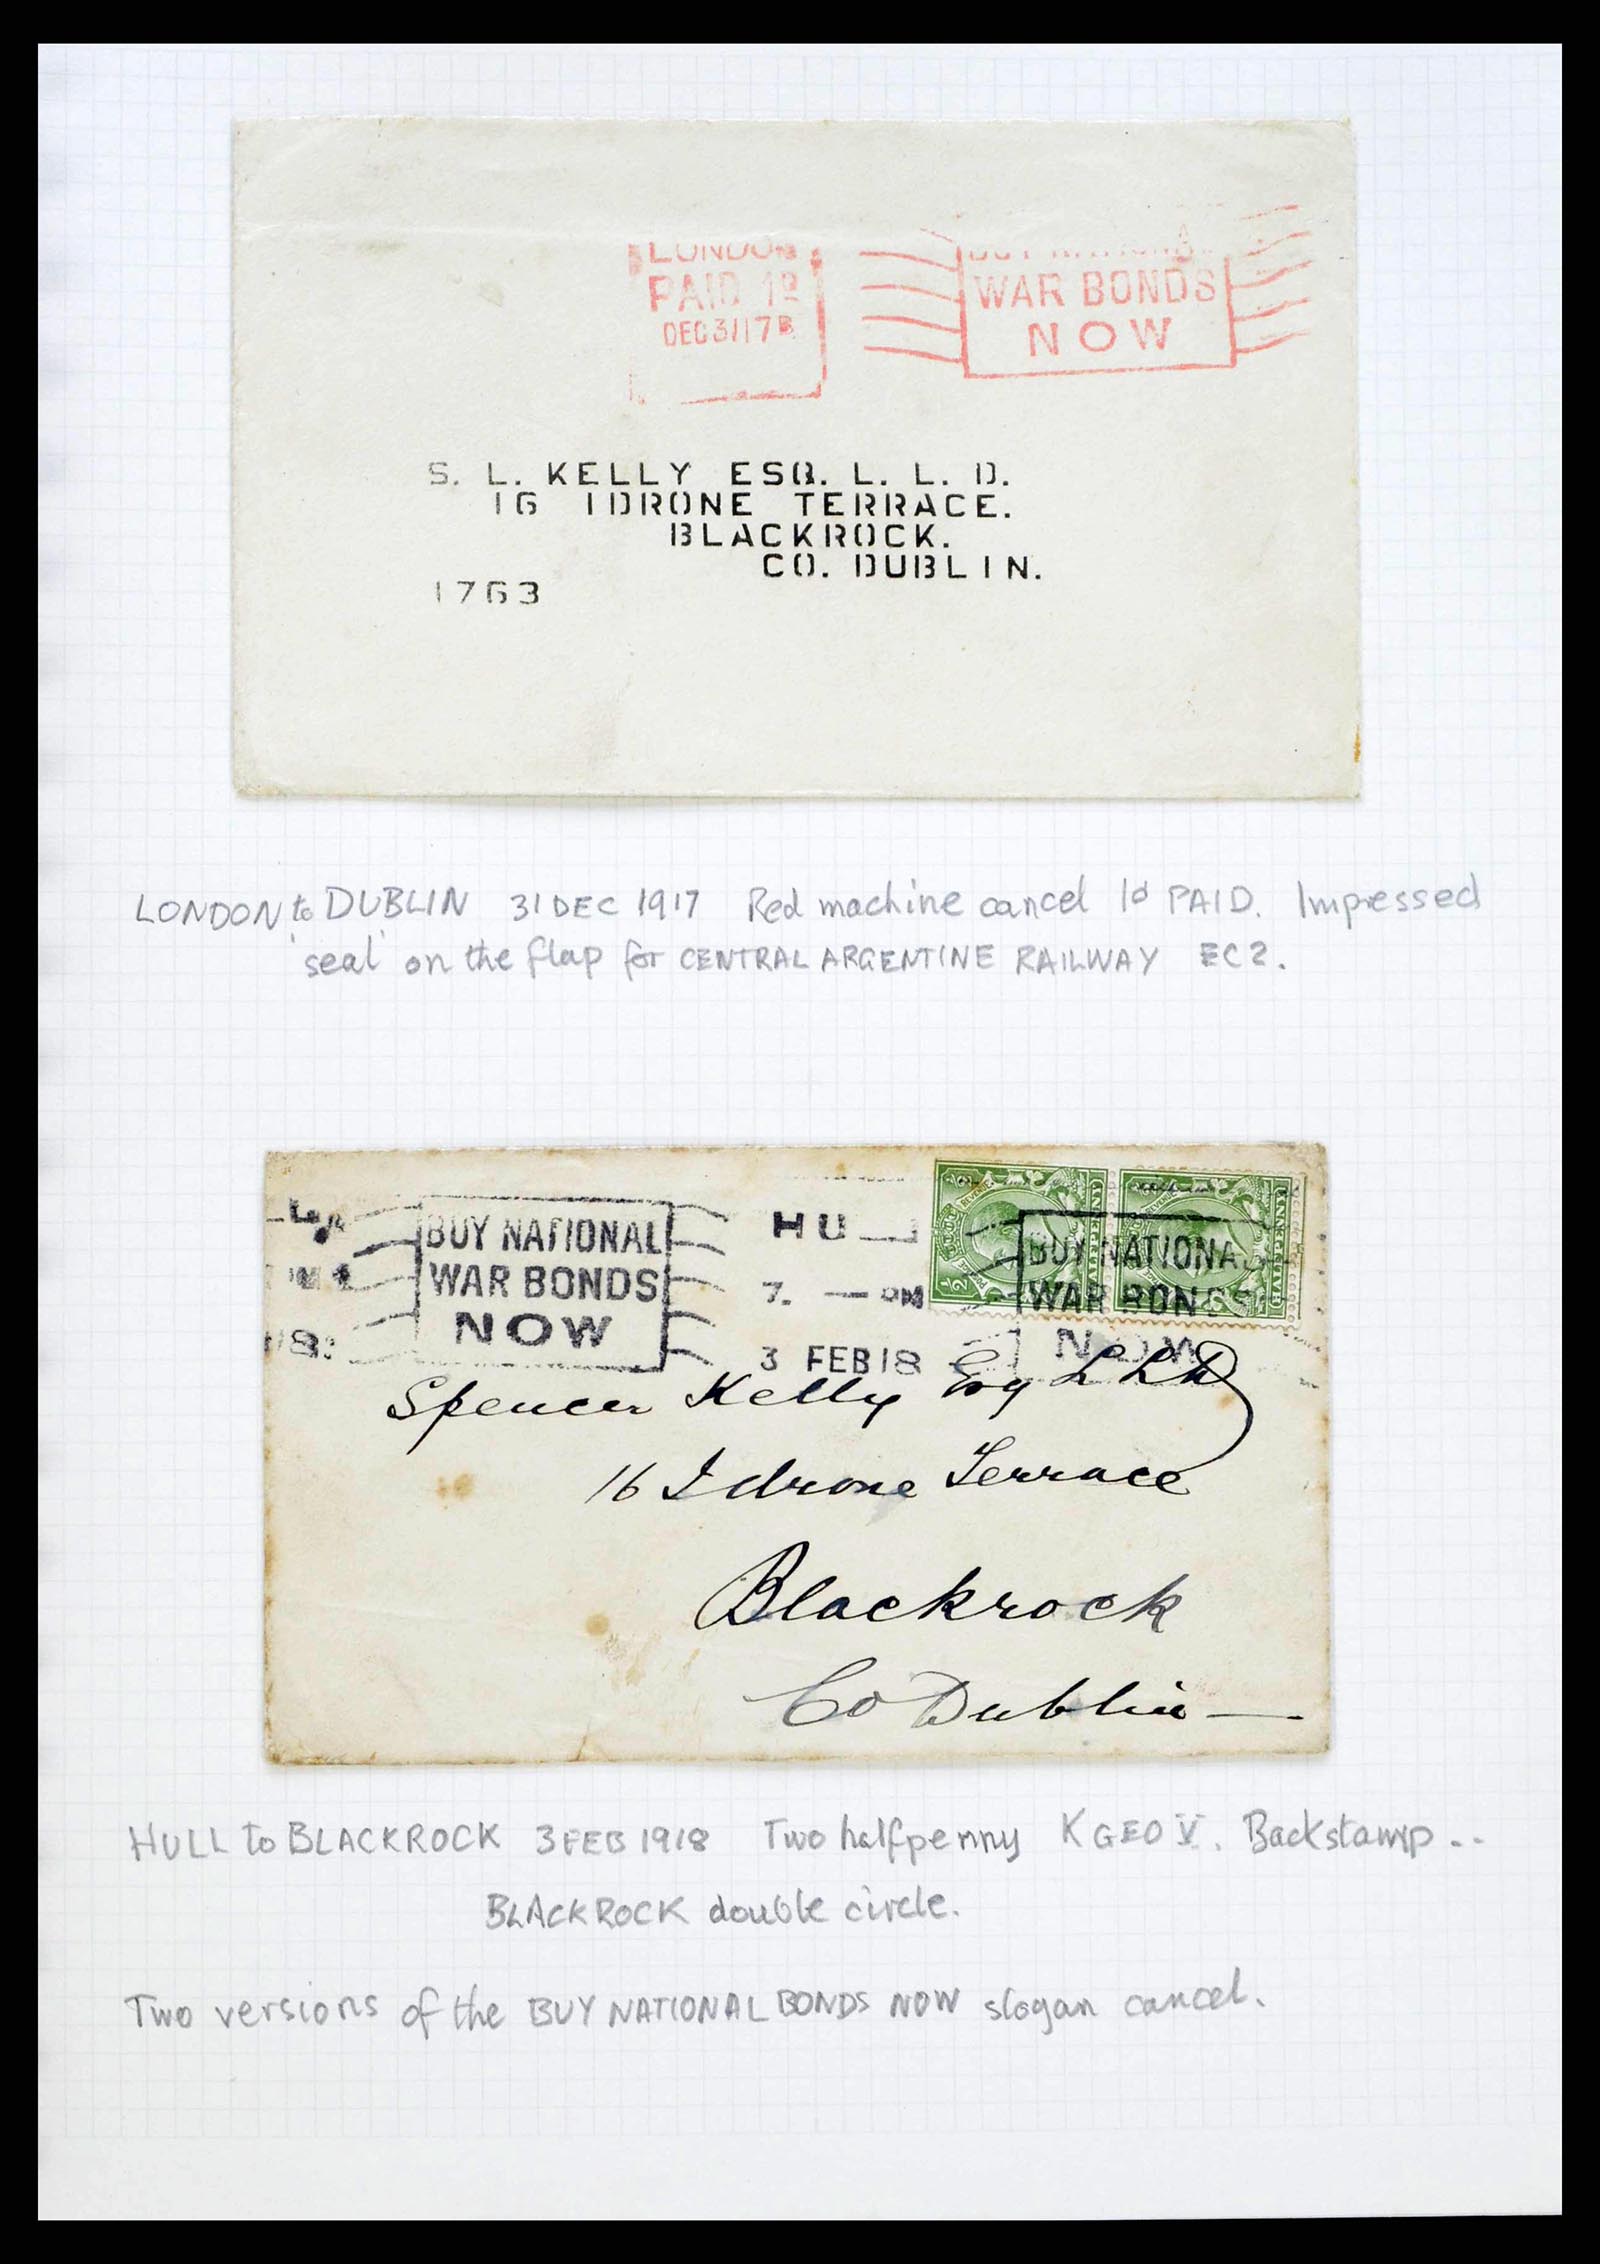 LONDON
PAID 1D
DEC 31 17 B
BUY NATIONAL
WAR BONDS
NOW
S. L. KELLY ESQ. L. L. D.
16 IDRONE TERRACE.
BLACKROCK.
CO. DUBLIN.
1763
LONDON to DUBLIN 31 DEC 1917 Red machine cancel 1d PAID. Impressed
'seal' on the flap for CENTRAL ARGENTINE RAILWAY EC2.
BUY NATIONAL
WAR BONDS
NOW
HU
7. — PM
3 FEB 18
BUY NATIONA
WAR BONDS
NOW
Spencer Kelly Esq LLD
16 Idrone Terrace
Blackrock
Co Dublin —
HULL to BLACKROCK 3 FEB 1918 Two halfpenny K GEO V. Backstamp..
BLACKROCK double circle.
Two versions of the BUY NATIONAL BONDS NOW slogan cancel.